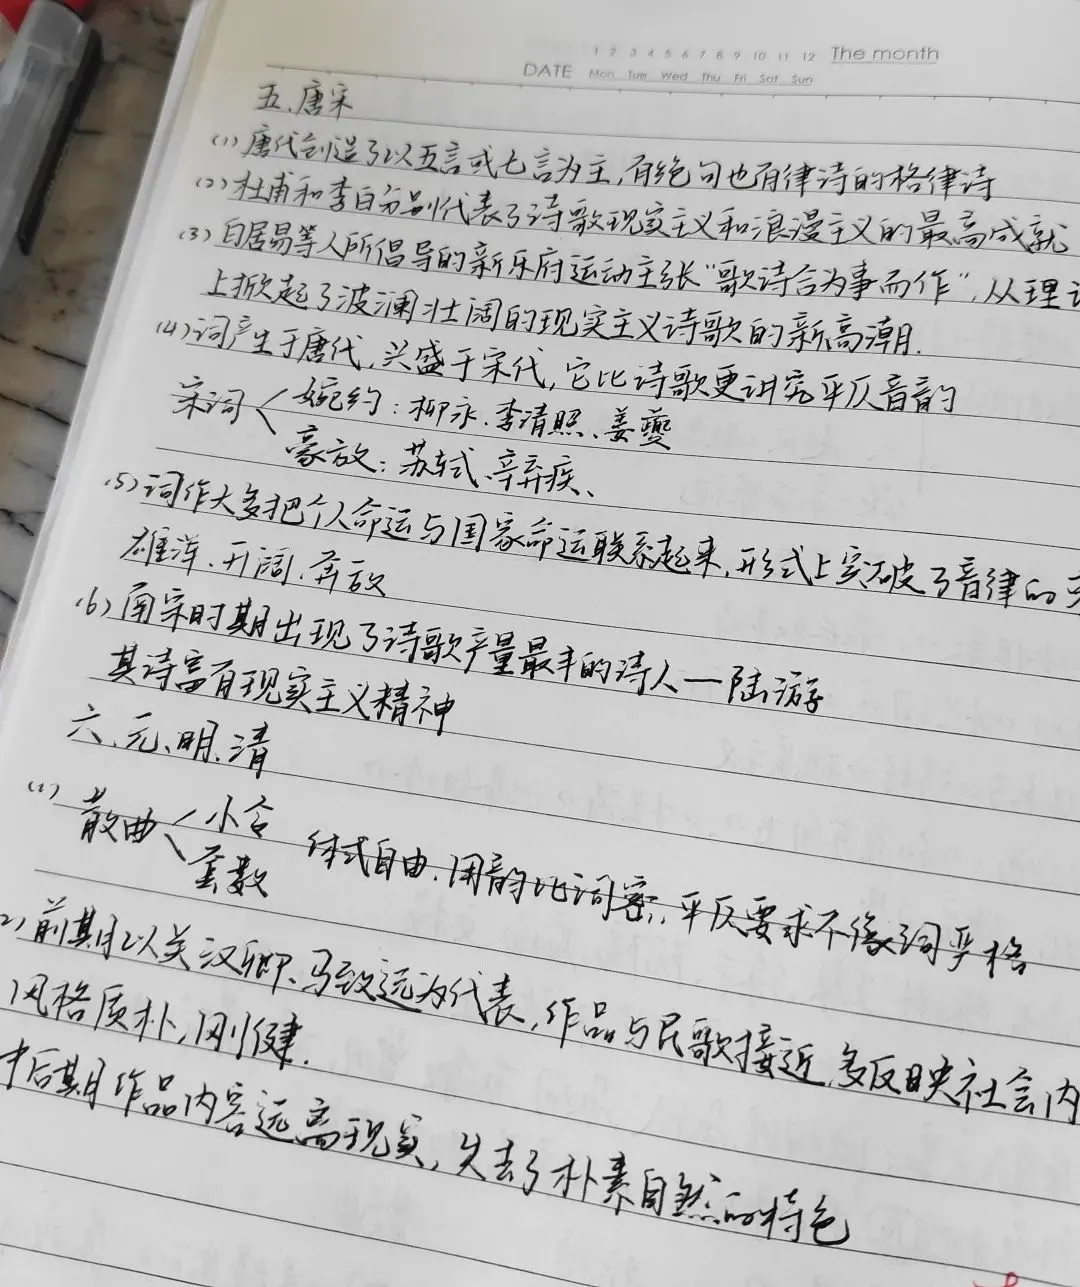 1 2 3 4 5 6 7 8 9 10 11 12 The month
DATE Mon Tue Wed Thu Fri Sat Sun
五、唐宋
(1) 唐代创造了以五言或七言为主,有绝句也有律诗的格律诗
(2) 杜甫和李白分别代表了诗歌现实主义和浪漫主义的最高成就
(3) 白居易等人所倡导的新乐府运动主张“歌诗合为事而作”,从理
上掀起了波澜壮阔的现实主义诗歌的新高潮.
(4) 词产生于唐代,兴盛于宋代,它比诗歌更讲究平仄音韵
宋词 婉约:柳永、李清照、姜夔
豪放:苏轼、辛弃疾、
(5) 词作大多把个人命运与国家命运联系起来,形式上突破了音律的
雄浑、开阔、奔放
(6) 南宋时期出现了诗歌产量最丰的诗人—陆游
其诗富有现实主义精神
六、元、明、清
(1) 散曲 小令
套数 体式自由、用韵比词密,平仄要求不像词严格
2) 前期以关汉卿、马致远为代表,作品与民歌接近,多反映社会内
风格质朴,刚健.
后期作品内容远离现实,失去了朴素自然的特色